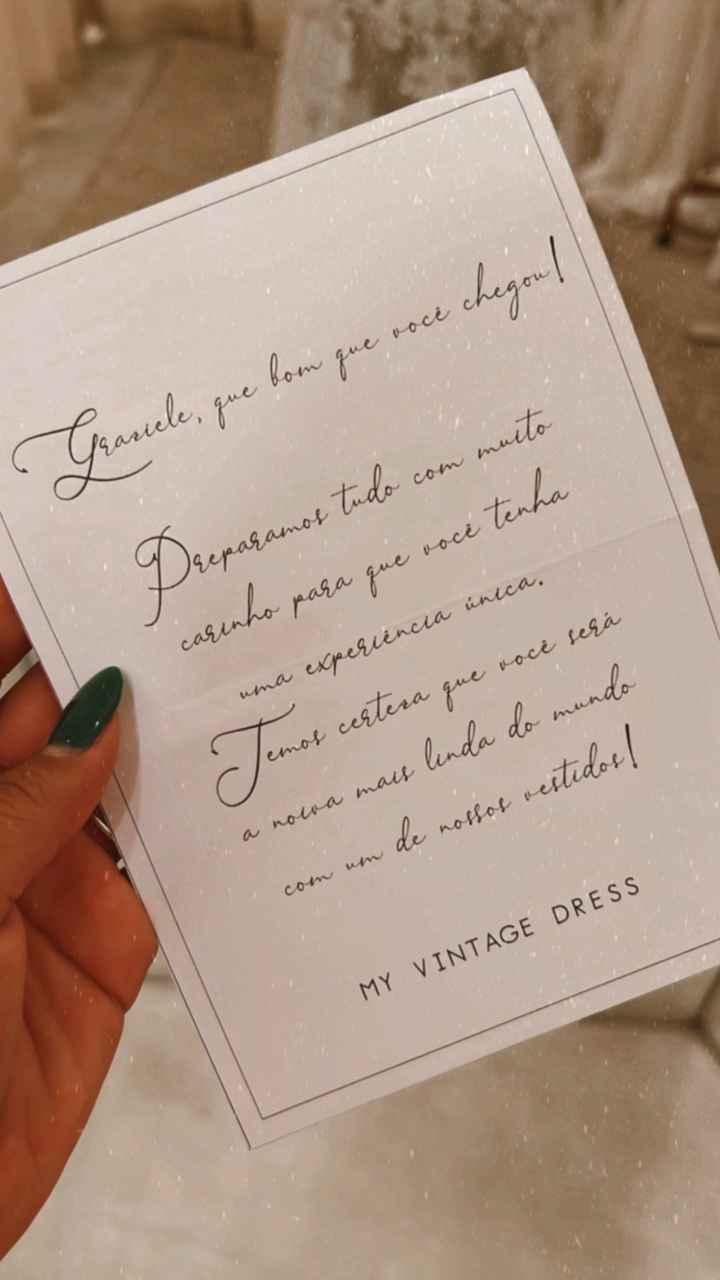 Graziele, que bom que você chegou!
Preparamos tudo com muito
carinho para que você tenha
uma experiência única.
Temos certeza que você será
a noiva mais linda do mundo
com um de nossos vestidos!
MY VINTAGE DRESS